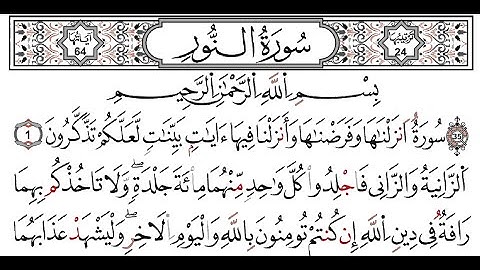 ترتيبها 24 سُورَةُ النُّورِ آياتها 64
بِسْمِ اِللَّهِ اِلرَّحْمَٰنِ اِلرَّحِيمِ
35 سُورَةٌ اَنزَلْنَٰهَا وَفَرَضْنَٰهَا وَأَنزَلْنَا فِيهَا ءَايَٰتِۢ بَيِّنَٰتٖ لَّعَلَّكُمْ تَذَّكَّرُونَ 1
اَلزَّانِيَةُ وَالزَّانِي فَاجْلِدُوا كُلَّ وَاحِدٖ مِّنْهُمَا مِاْئَةَ جَلْدَةٖۖ وَلَا تَاخُذْكُم بِهِمَا
رَافَةٞ فِي دِينِ اِللَّهِ إِن كُنتُمْ تُومِنُونَ بِاللَّهِ وَالْيَوْمِ اِلَاخِرِۖ وَلْيَشْهَدْ عَذَابَهُمَا